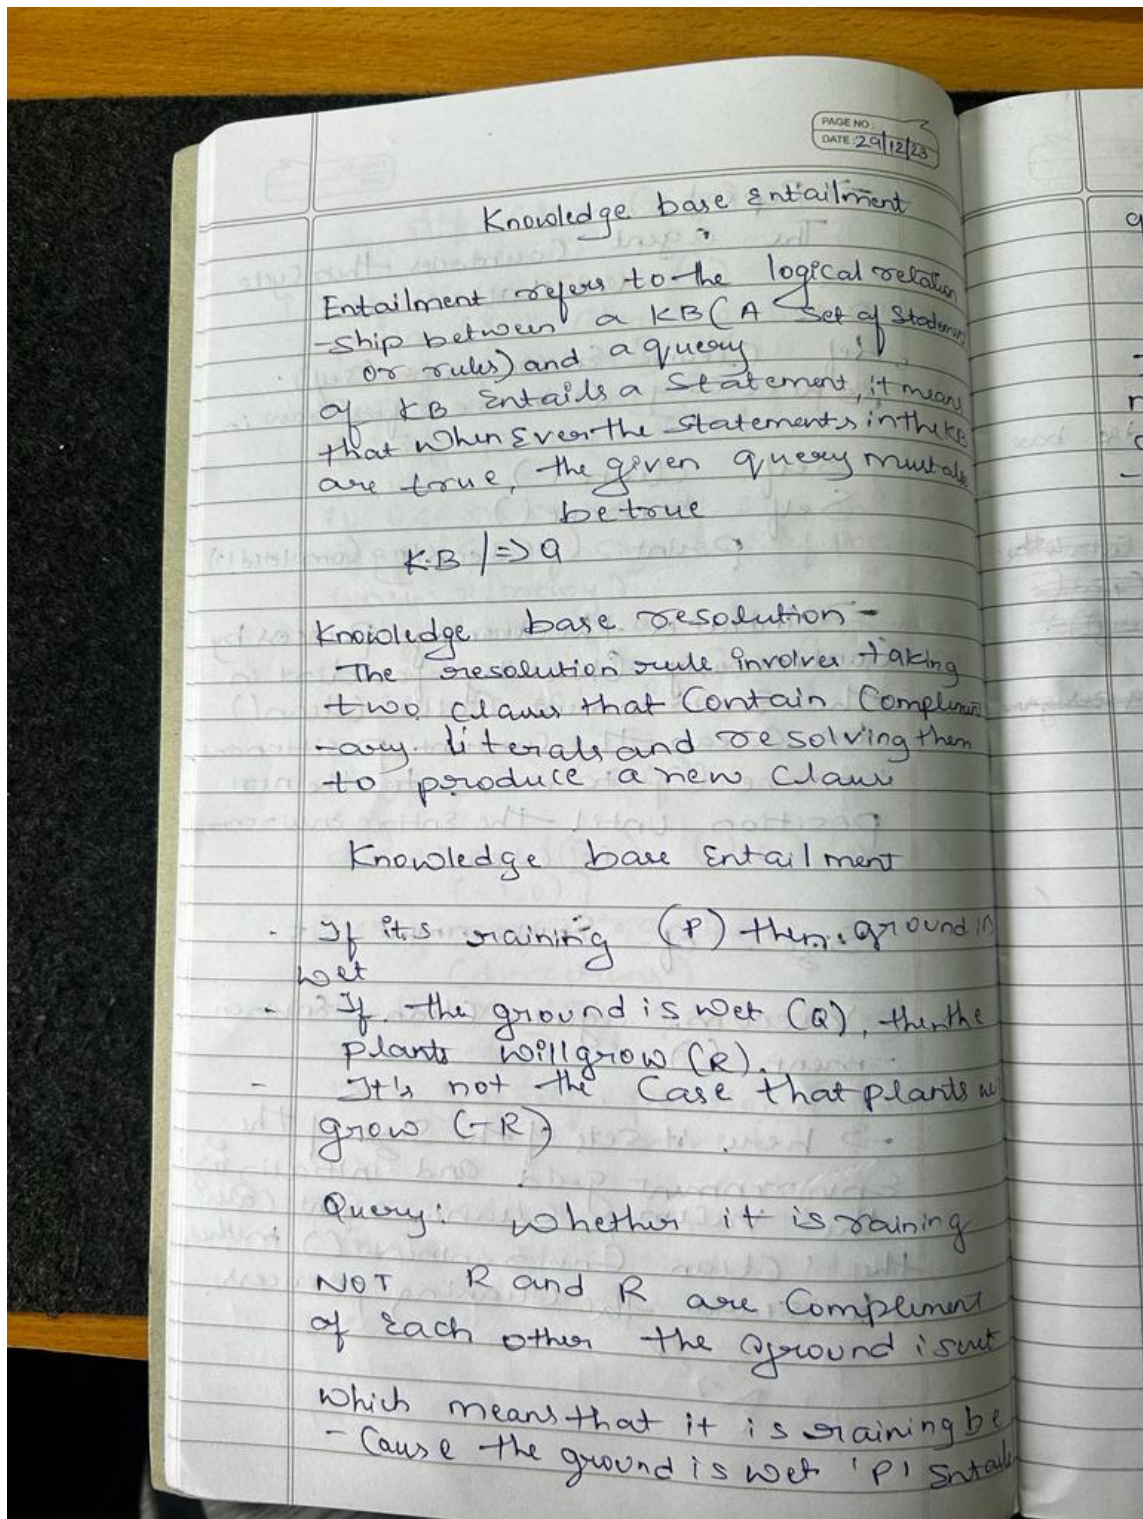 PAGE NO:
DATE: 29/12/23
Knowledge base Entailment
Entailment refers to the logical relation
-ship between a KB (A set of Statement
or rules) and a query
of KB Entails a statement, it means
that when Ever the statements in the KB
are true, the given query must als
be true
K.B |=> Q
Knowledge base resolution -
The resolution rule involves taking
two clauses that contain Compliment
-ary literals and resolving them
to produce a new Clause
Knowledge base Entailment
- If its raining (P) then ground is
wet
- If the ground is wet (Q), then the
plants will grow (R).
- It's not the Case that plants wi
grow (¬R)
Query: Whether it is raining
NOT R and R are Compliment
of Each other the ground is wet
which means that it is raining be
- Cause the ground is wet 'P' Entails